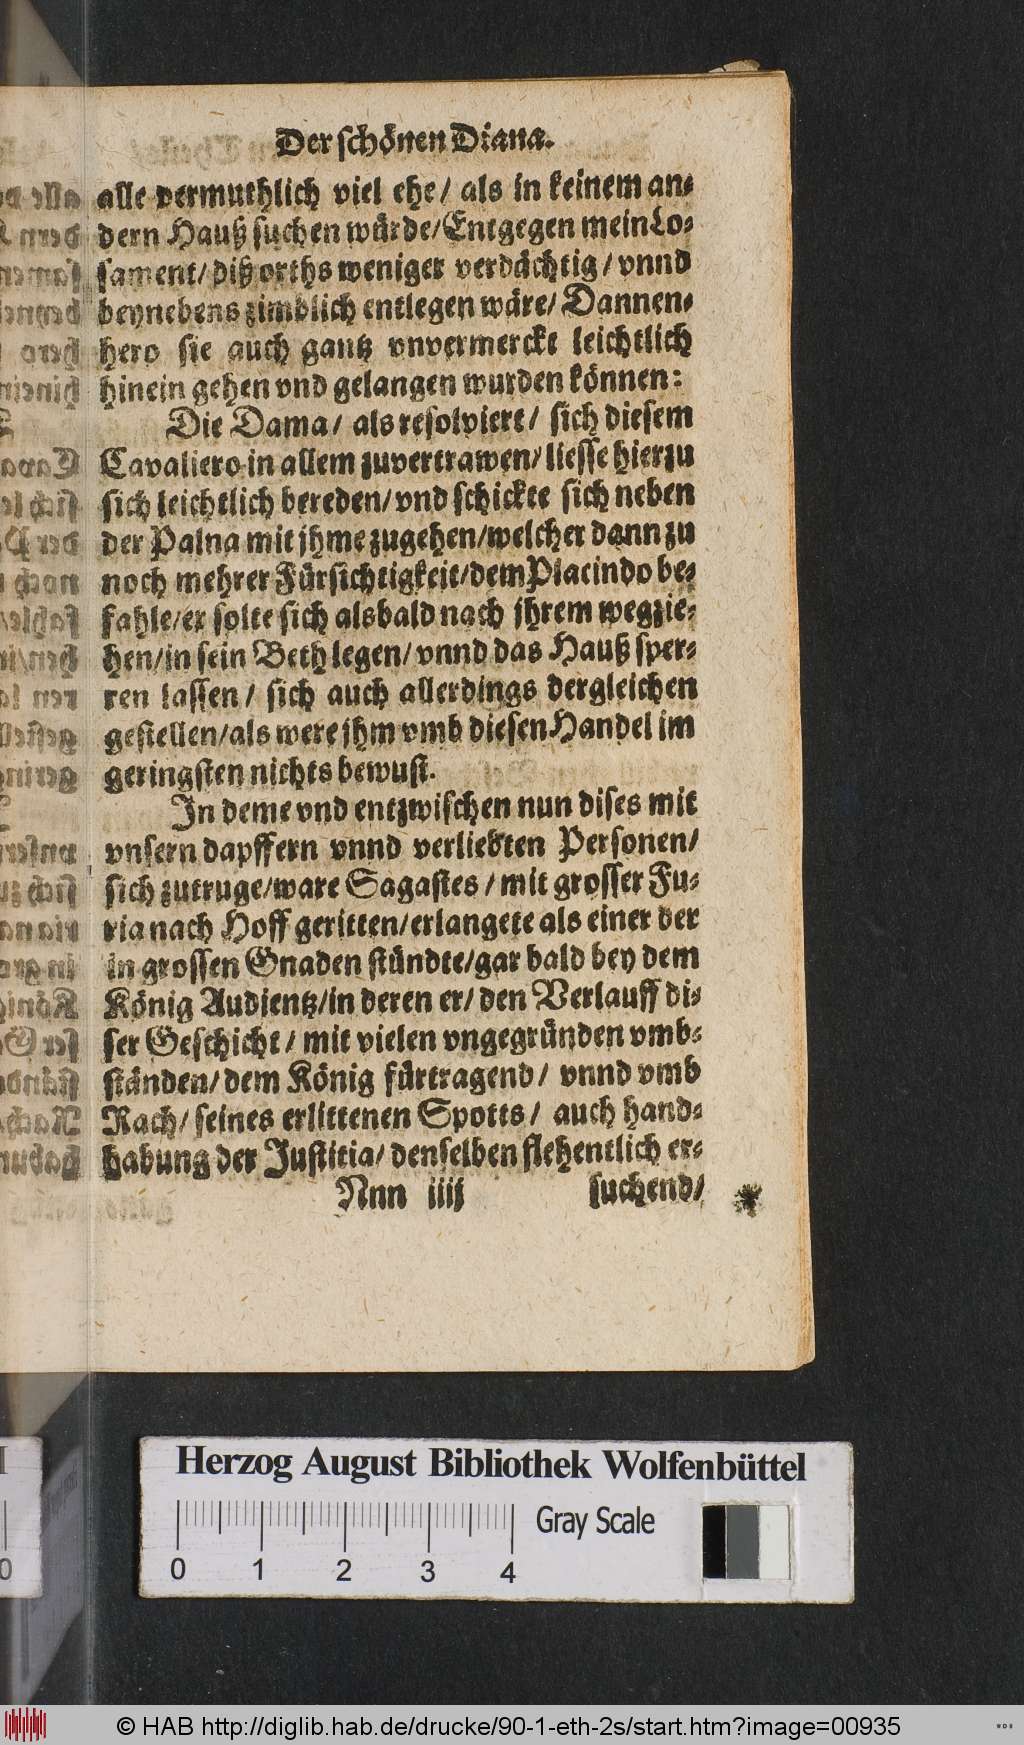 Der schönen Diana.
alle vermuthlich viel ehe/ als in keinem an-
dern Hauß suchen würde/Entgegen mein Lo-
sament/diß orths weniger verdächtig/vnnd
beynebens zimblich entlegen wäre/ Dannen-
hero sie auch gantz vnvermerckt leichtlich
hinein gehen vnd gelangen wurden können:
Die Dama/ als resolviert/ sich diesem
Cavaliero in allem zuvertrawen/liesse hierzu
sich leichtlich bereden/vnd schickte sich neben
der Palna mit jhme zugehen/welcher dann zu
noch mehrer Fürsichtigkeit/dem Placindo be-
fahle/er solte sich alsbald nach jhrem wegzie-
hen/in sein Beth legen/vnnd das Hauß sper-
ren lassen/ sich auch allerdings dergleichen
gestellen/als were jhm vmb diesen Handel im
geringsten nichts bewust.
In deme vnd entzwischen nun dises mit
vnsern dapffern vnnd verliebten Personen/
sich zutruge/ware Sagastes/mit grosser Fu-
ria nach Hoff geritten/erlangete als einer der
in grossen Gnaden stündte/gar bald bey dem
König Audientz/in deren er/den Verlauff di-
ser Geschicht/mit vielen vngegründen vmb-
ständen/dem König fürtragend/ vnnd vmb
Rach/seines erlittenen Spotts/ auch hand-
habung der Justitia/denselben flehentlich er-
Nnn iiij suchend/
Herzog August Bibliothek Wolfenbüttel
Gray Scale
0 1 2 3 4
© HAB http://diglib.hab.de/drucke/90-1-eth-2s/start.htm?image=00935